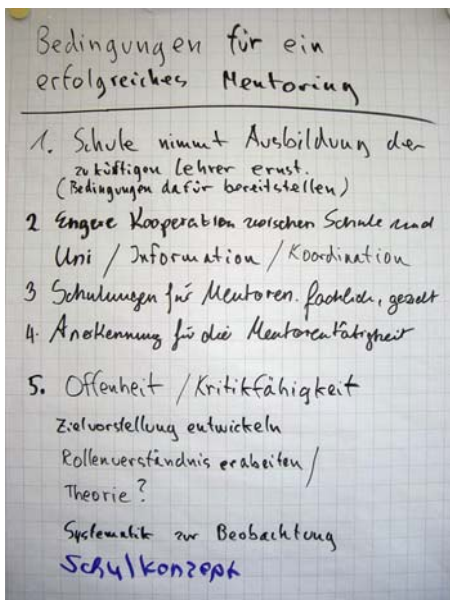 Bedingungen für ein
erfolgreiches Mentoring
1. Schule nimmt Ausbildung der
zuküftigen Lehrer ernst.
(Bedingungen dafür bereitstellen)
2 Engere Kooperation zwischen Schule und
Uni / Information / Koordination
3 Schulungen für Mentoren. fachlich, gezielt
4. Anerkennung für die Mentorentätigkeit
5. Offenheit / Kritikfähigkeit
Zielvorstellung entwickeln
Rollenverständnis erabeiten /
Theorie?
Systematik zur Beobachtung
Schulkonzept